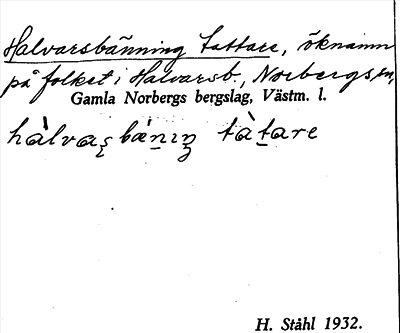 Halvarsbänning tattare, öknamn
på folket i Halvarsb., Norbergs sn,
Gamla Norbergs bergslag, Västm. l.
hàlvaʂbæ̀nɪŋ tàtare
H. Ståhl 1932.